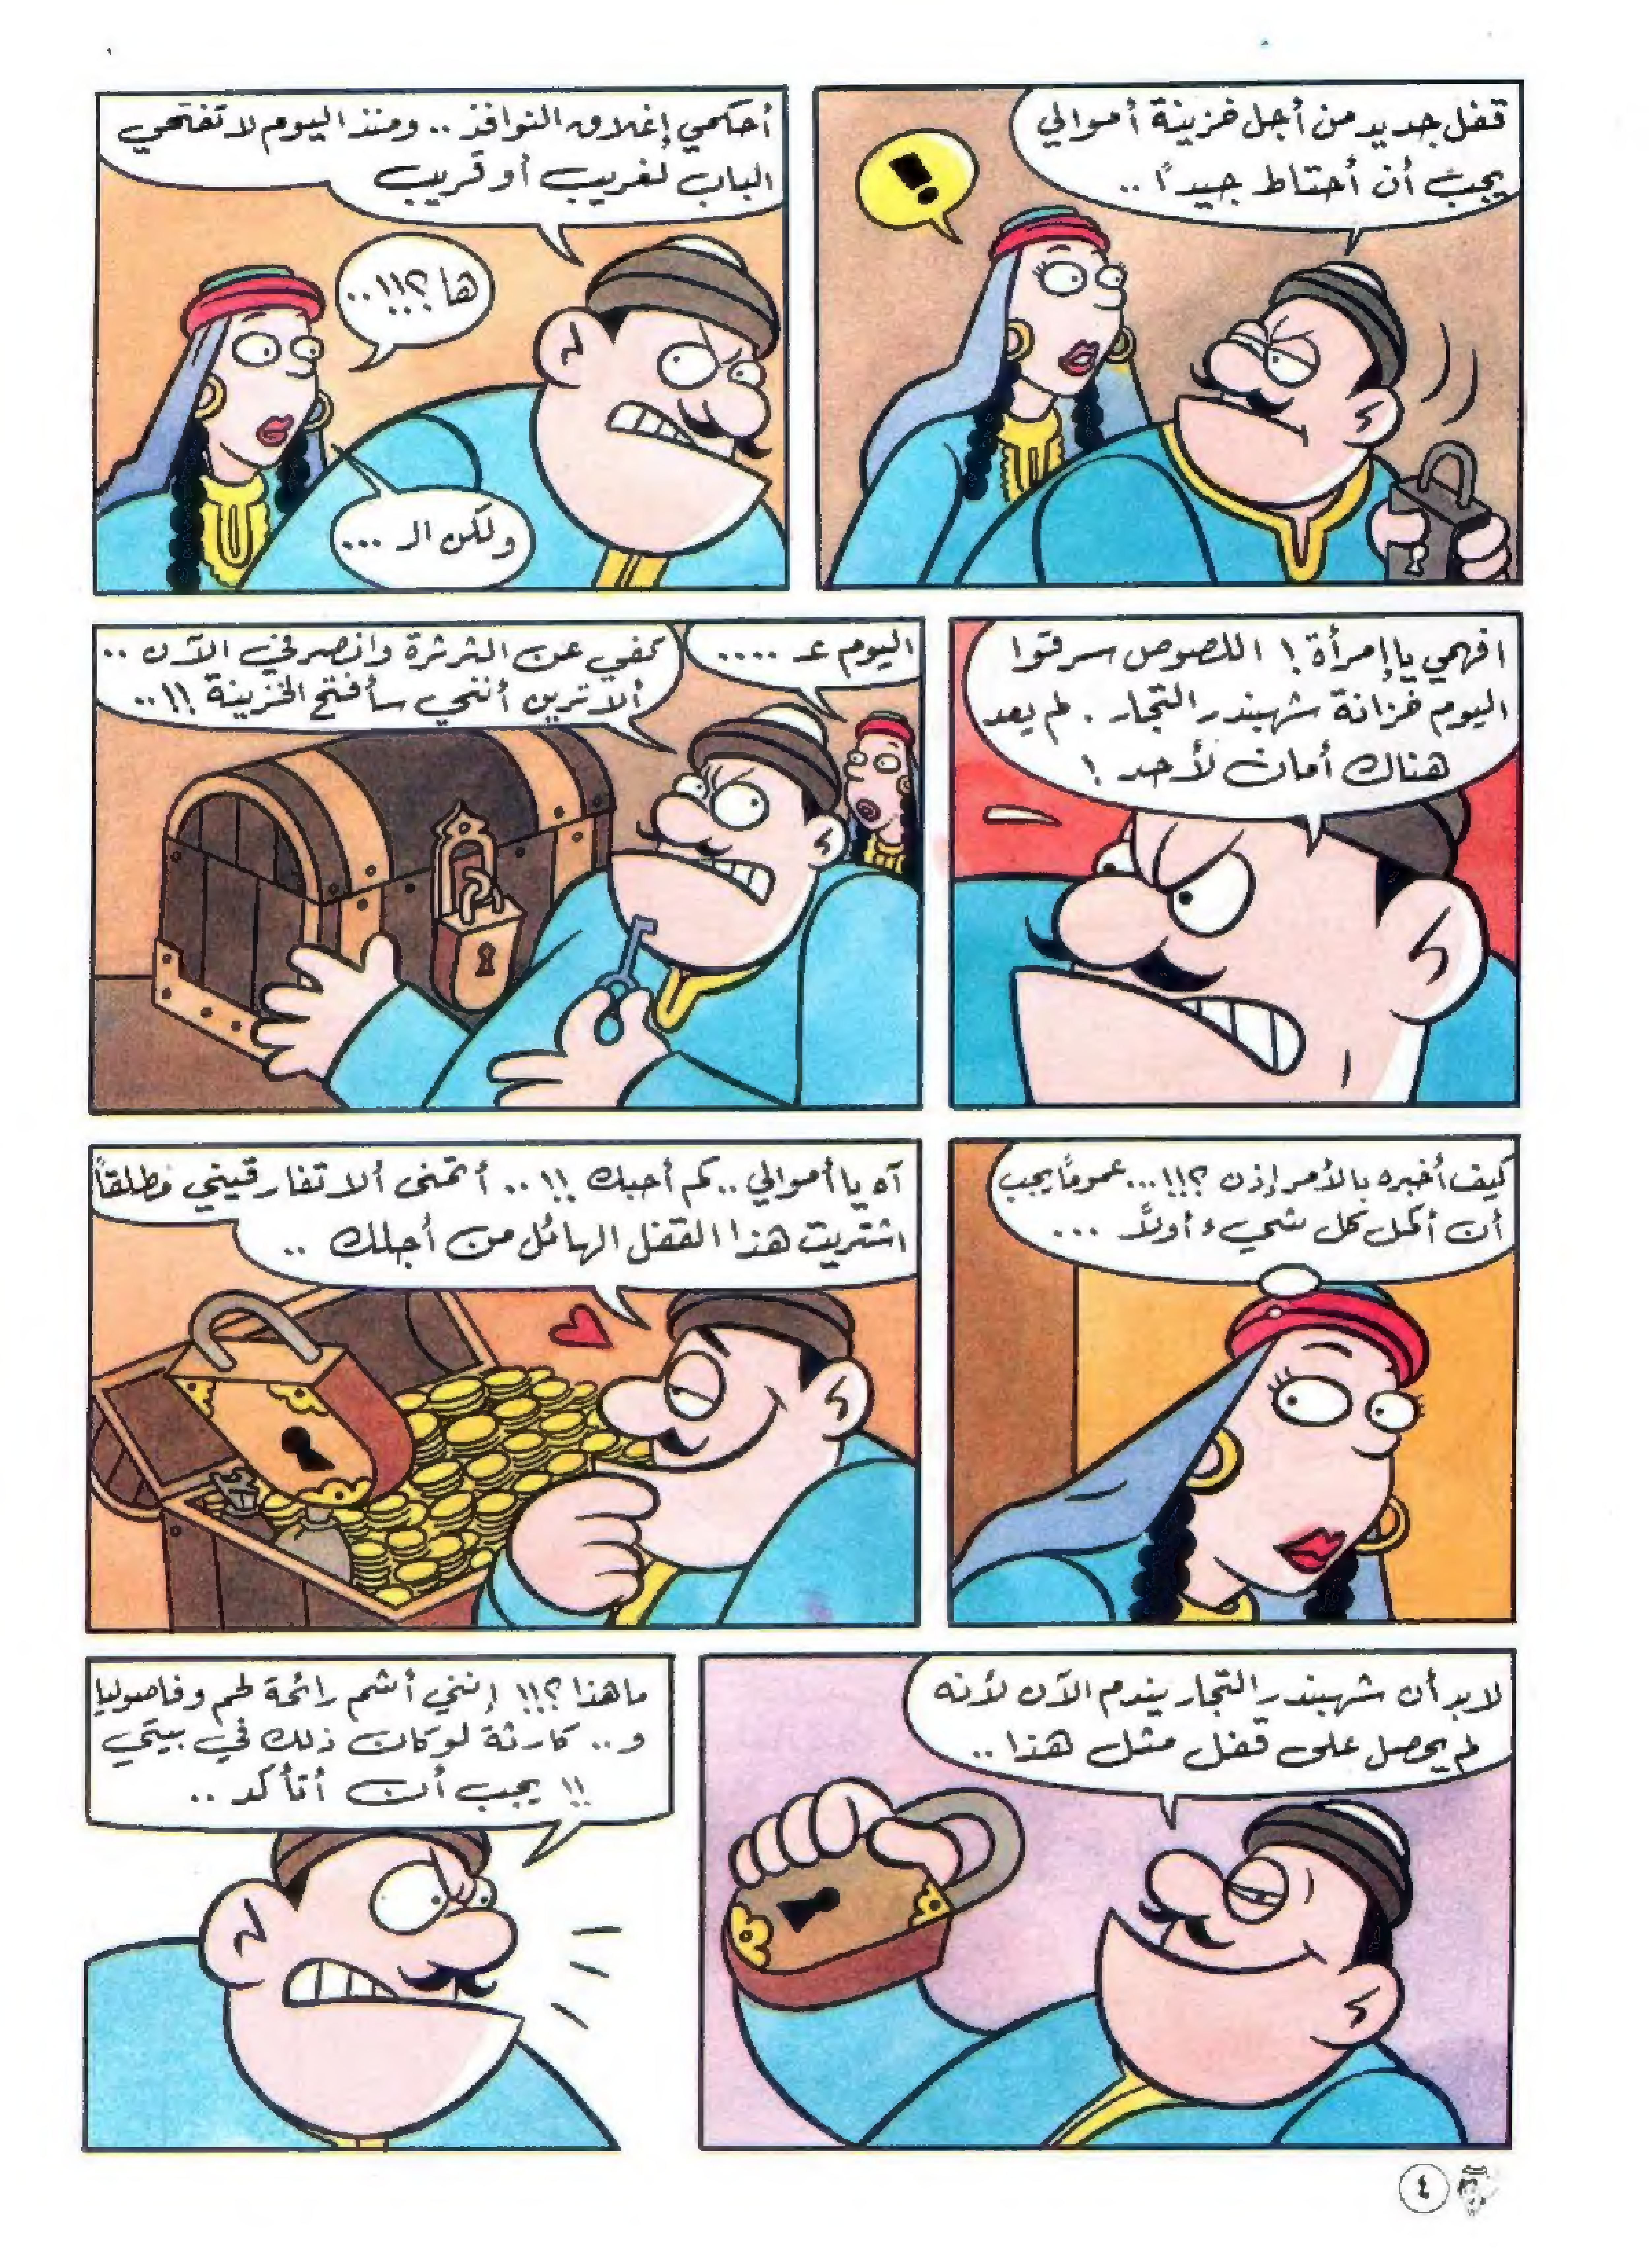 قفل جديد من أجل خزينة أموالي
يجب أن أحتاط جيداً ..
!
أحكمي إغلاق النوافذ .. ومنذ اليوم لا تفتحي
الباب لغريب أو قريب
ها ؟!!..
ولكن الـ ...
افهمي يا إمرأة ! اللصوص سرقوا
اليوم خزانة شهبندر التجار . لم يعد
هناك أمان لأحد !
اليوم عـ ....
كفي عن الثرثرة وانصرفي الآن ..
ألا ترين أنني سأفتح الخزينة !!..
كيف أخبره بالأمر إذن ؟!!... عموماً يجب
أن أكمل كل شيء أولاً ...
آه يا أموالي .. كم أحبك !!.. أتمنى ألا تفارقيني مطلقاً
اشتريت هذا القفل الهائل من أجلك ..
لابد أن شهبندر التجار يندم الآن لأنه
لم يحصل على قفل مثل هذا ..
ما هذا ؟!! إنني أشم رائحة لحم وفاصوليا
و .. كارثة لو كان ذلك في بيتي
!! يجب أن أتأكد ..
٤